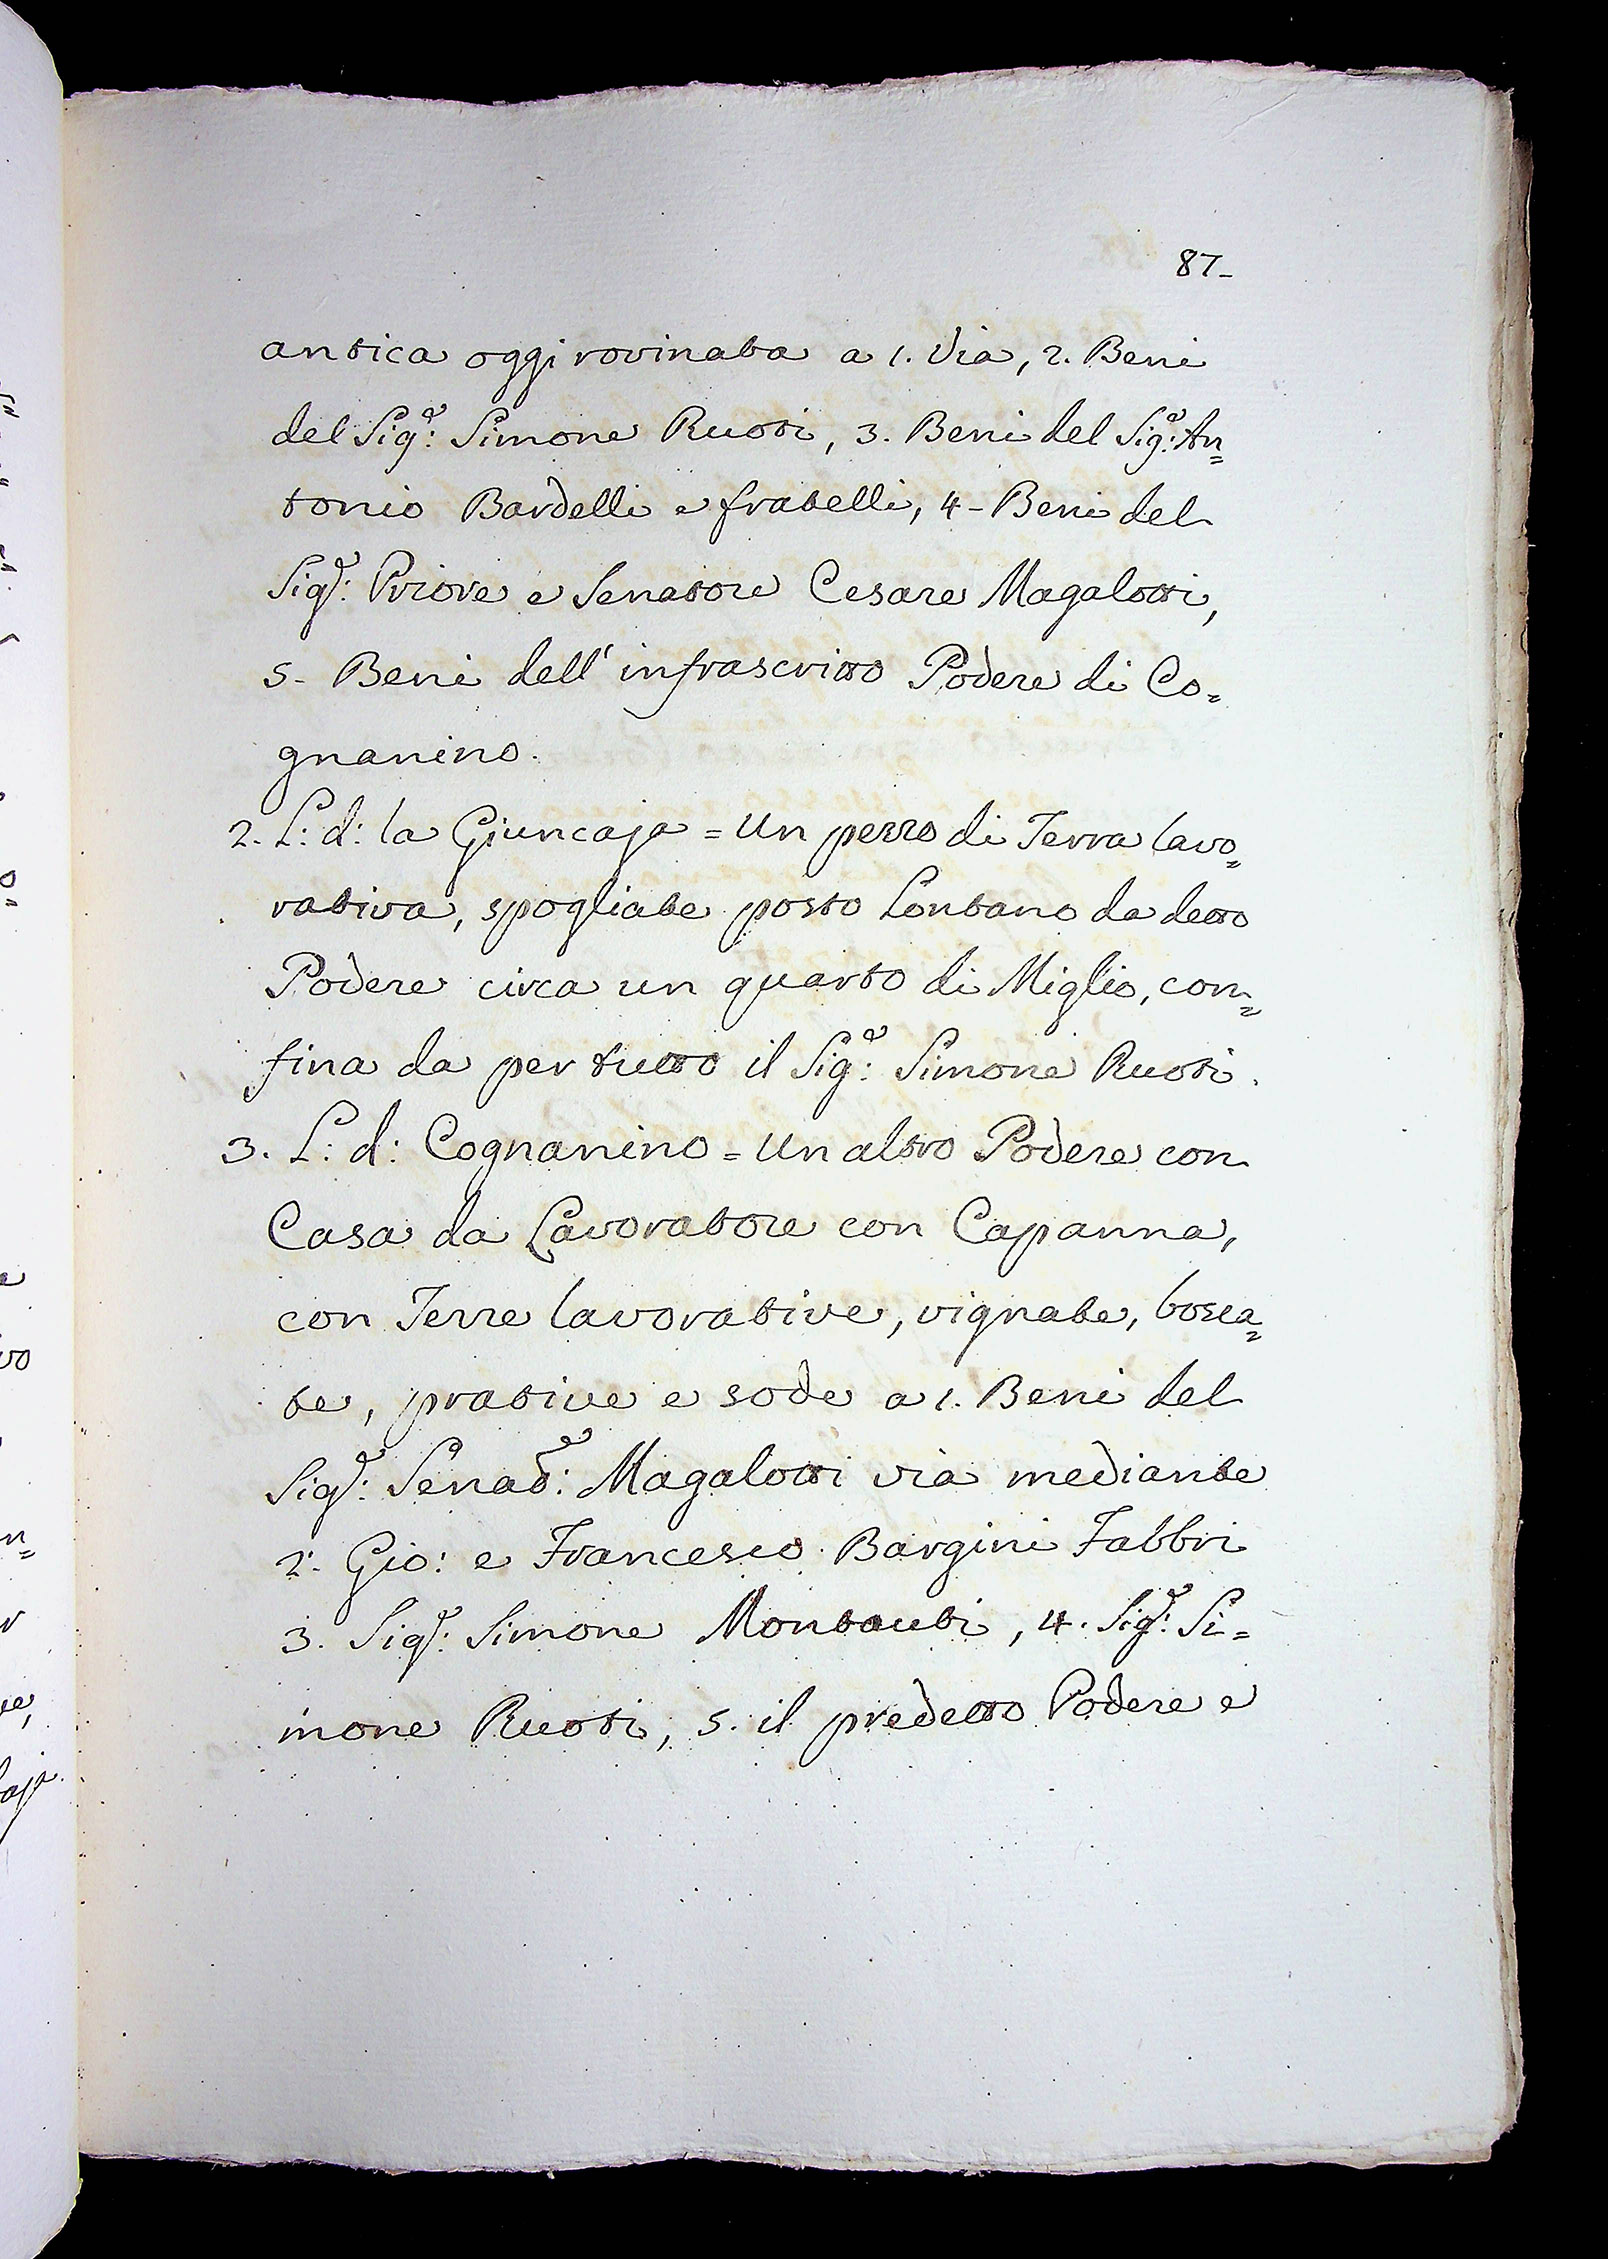 87-
antica oggi rovinata a 1. Via, 2. Beni
del Sig.e: Simone Ruoti, 3. Beni del Sig.e: An=
tonio Bardelli e fratelli, 4- Beni del
Sig.r: Priore e Senatore Cesare Magalotti,
5- Beni dell' infrascritto Podere di Co=
gnanino.
2. L: d: la Giuncaja = Un pezzo di Terra lavo=
rativa, spogliate posto Lontano da detto
Podere circa un quarto di Miglio, con=
fina da per tutto il Sig.e: Simone Ruoti.
3. L: d: Cognanino = Un altro Podere con
Casa da Lavoratore con Capanna,
con Terre lavorative, vignate, bosca=
te, prative e sode a 1. Beni del
Sig.r: Senat.e: Magalotti via mediante
2. Gio: e Francesco Bargini Fabbri
3. Sig.r: Simone Montauti, 4. Sig.r: Si=
mone Ruoti, 5. il predetto Podere e